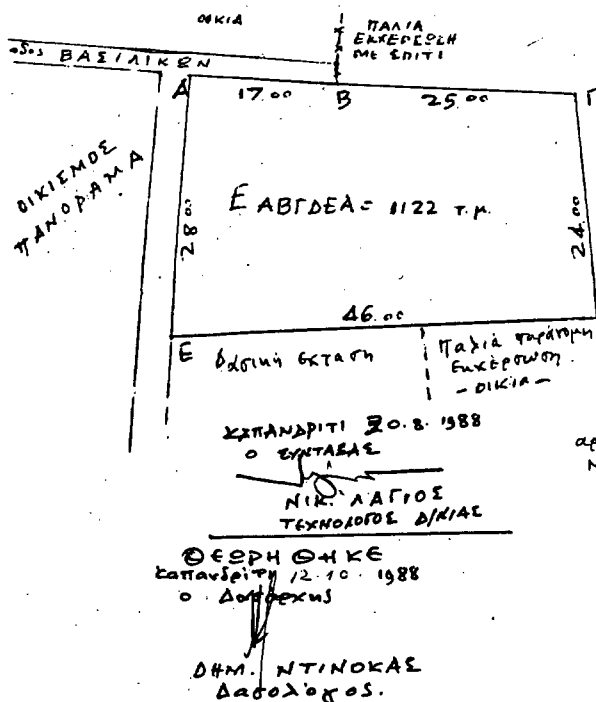 ΟΙΚΙΑ
ΠΑΛΙΑ
ΕΚΧΕΡΣΩΣΗ
ΜΕ ΣΠΙΤΙ
οδος ΒΑΣΙΛΙΚΩΝ
Α 17.00 Β 25.00 Γ
ΟΙΚΙΣΜΟΣ
ΠΑΝΟΡΑΜΑ
28.00
Ε ΑΒΓΔΕΑ = 1122 τ.μ.
24.00
46.00
Ε Δασική έκταση
Παλιά παράνομη
Εκχέρσωση
- ΟΙΚΙΑ -
ΚΑΠΑΝΔΡΙΤΙ 20.8.1988
Ο ΣΥΝΤΑΞΑΣ
ΝΙΚ. ΛΑΓΙΟΣ
ΤΕΧΝΟΛΟΓΟΣ Δ/ΝΙΑΣ
ΘΕΩΡΗΘΗΚΕ
Καπανδρίτι 12.10.1988
ο Δασάρχης
ΔΗΜ. ΝΤΙΝΟΚΑΣ
Δασολόγος.